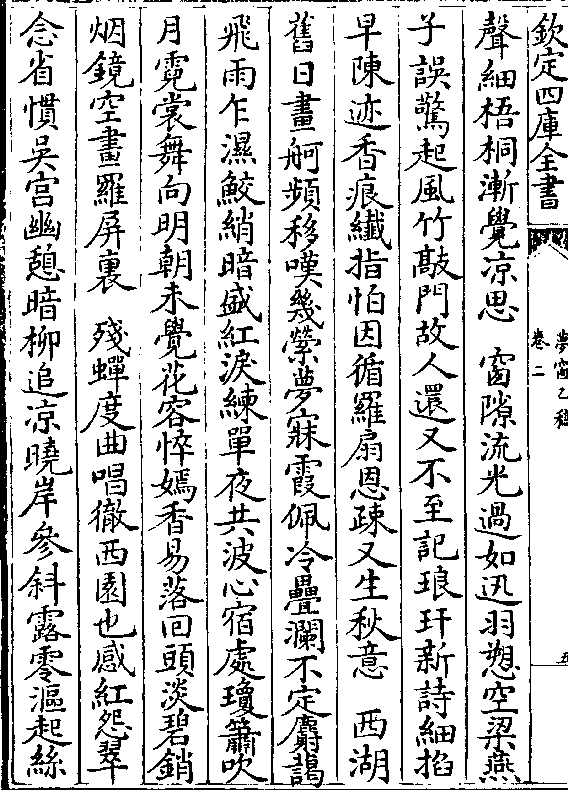 欽定四庫全書
夢窗乙稿
卷二
五
聲細梧桐漸覺凉思　窗隙流光過如迅羽愬空梁燕
子誤驚起風竹敲門故人還又不至記琅玕新詩細掐
早陳迹香痕纎指怕因循羅扇恩疎又生秋意　西湖
舊日畫舸頻移嘆幾縈夢寐霞佩冷疊瀾不定麝藹
飛雨乍濕鮫綃暗盛紅淚練單夜共波心宿處瓊簫吹
月霓裳舞向明朝未覺花容悴嫣香易落回頭淡碧銷
烟鏡空畫羅屏裏　殘蟬度曲唱徹西園也感紅怨翠
念省慣吳宫幽憩暗柳追凉曉岸參斜露零漚起絲